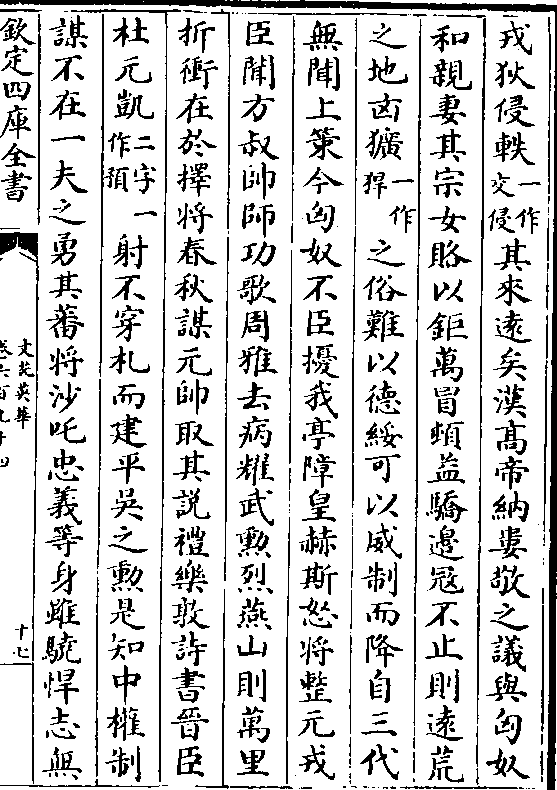 戎狄侵軼一作交侵其來遠矣漢髙帝納婁敬之議與匈奴
和親妻其宗女賂以鉅萬冒頓益驕邊冦不止則逺荒
之地凶獷一作猂之俗難以德綏可以威制而降自三代
無聞上策今匈奴不臣擾我亭障皇赫斯怒将整元戎
臣聞方叔帥師功歌周雅去病耀武勲烈燕山則萬里
折衝在於擇将春秋謀元帥取其説禮樂敦詩書晉臣
杜元凱二字一作預射不穿札而建平吳之勲是知中權制
謀不在一夫之勇其蕃将沙吒忠義等身雖驍悍志無
欽定四庫全書
文苑英華
卷六百九十四
十七